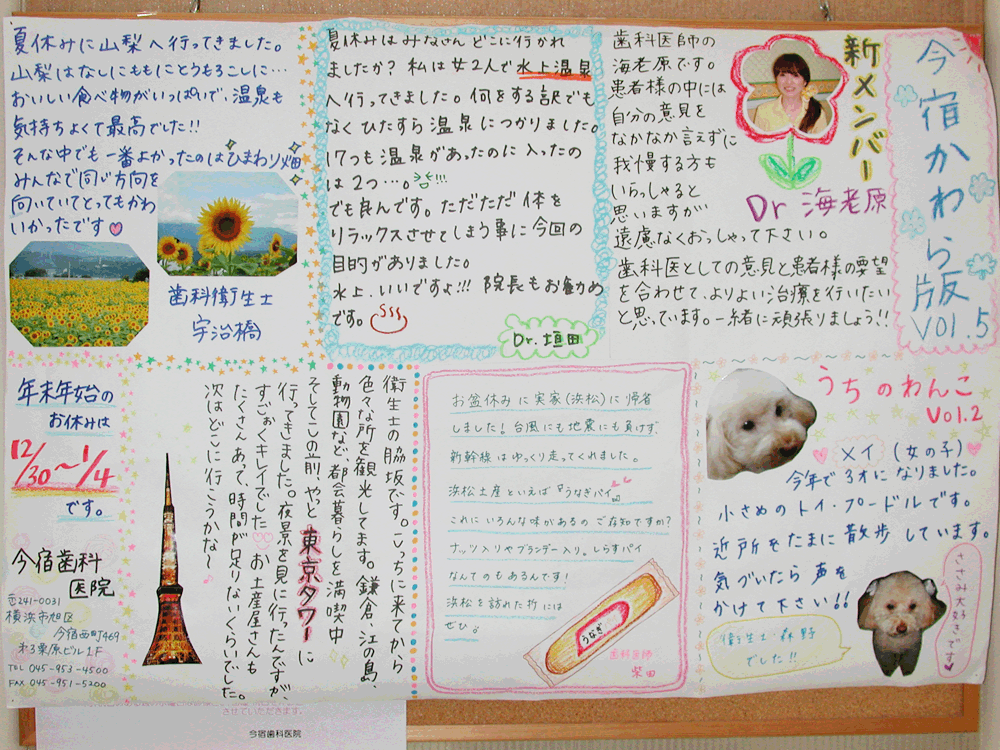 今宿かわら版
VOl.5
新メンバー
Dr 海老原
歯科医師の
海老原です。
患者様の中には
自分の意見を
なかなか言えずに
我慢する方も
いらっしゃると
思いますが
遠慮なくおっしゃって下さい。
歯科医としての意見と患者様の要望
を合わせて、よりよい治療を行いたい
と思っています。一緒に頑張りましょう!!
夏休みはみなさん どこに行かれ
ましたか？私は女2人で水上温泉
へ行ってきました。何をする訳でも
なくひたすら温泉につかりました。
17つも温泉があったのに入ったの
は2つ…。
でも良んです。ただただ体を
リラックスさせてしまう事に今回の
目的がありました。
水上、いいですよ!!! 院長もお勧め
です。
Dr.垣田
夏休みに山梨へ行ってきました。
山梨はなしにももにとうもろこしに…
おいしい食べ物がいっぱいで、温泉も
気持ちよくて最高でした!!
そんな中でも一番よかったのはひまわり畑
みんなで同じ方向を
向いていてとってもかわ
いかったです♡
歯科衛生士
宇治橋
うちのわんこ
VOl.2
メイ (女の子)
今年で3才になりました。
小さめのトイ・プードルです。
近所をたまに散歩しています。
気づいたら声を
かけて下さい!!
ささみ大好きです♡
衛生士・森野
でした!!
お盆休みに実家(浜松)に帰省
しました！台風にも地震にも負けず、
新幹線はゆっくり走ってくれました。
浜松土産といえば『うなぎパイ』。
これにいろんな味があるのご存知ですか？
ナッツ入りやブランデー入り。しらすパイ
なんてのもあるんです！
浜松を訪れた折には
ぜひ。
うなぎ
歯科医師
柴田
衛生士の脇坂です。こっちに来てから
色々な所を観光してます。鎌倉、江の島、
動物園など、都会暮らしを満喫中
そしてこの前、やっと東京タワーに
行ってきました。夜景を見に行ったんですが、
すごぉくキレイでした♡♡お土産屋さんも
たくさんあって、時間が足りないくらいでした。
次はどこに行こうかな〜♪
年末年始の
お休みは
12/30〜1/4
です。
今宿歯科
医院
〒241-0031
横浜市旭区
今宿西町469
オ3栗原ビル1F
TEL 045-953-4500
FAX 045-951-5200
させていただきます。
今宿歯科医院